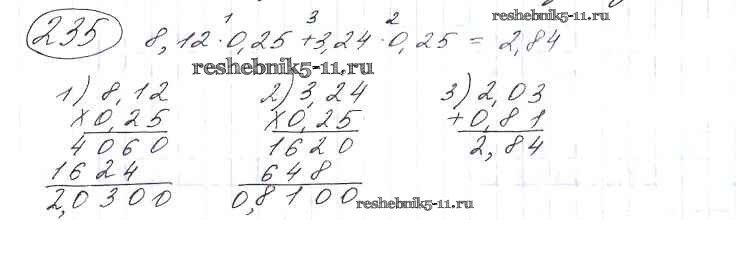 reshebnik5-11.ru
1 3 2
235 8,12 · 0,25 + 3,24 · 0,25 = 2,84
reshebnik5-11.ru
1) 8,12 2) 3,24 3) 2,03
x 0,25 x 0,25 + 0,81
4060 1620 2,84
1624 648
2,0300 0,8100 reshebnik5-11.ru